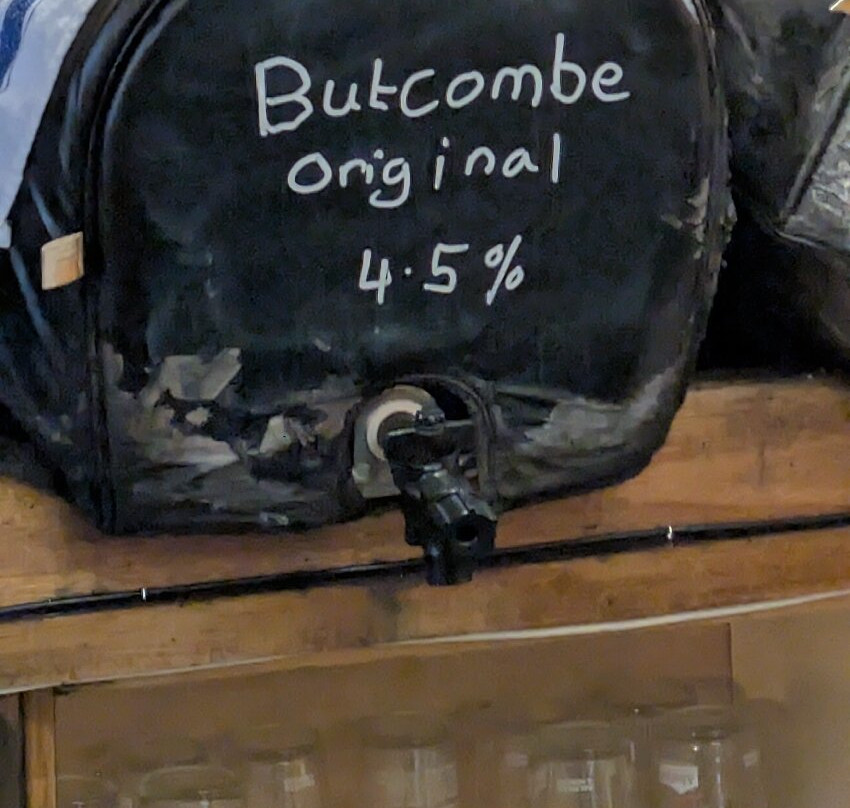 Butcombe
original
4.5%